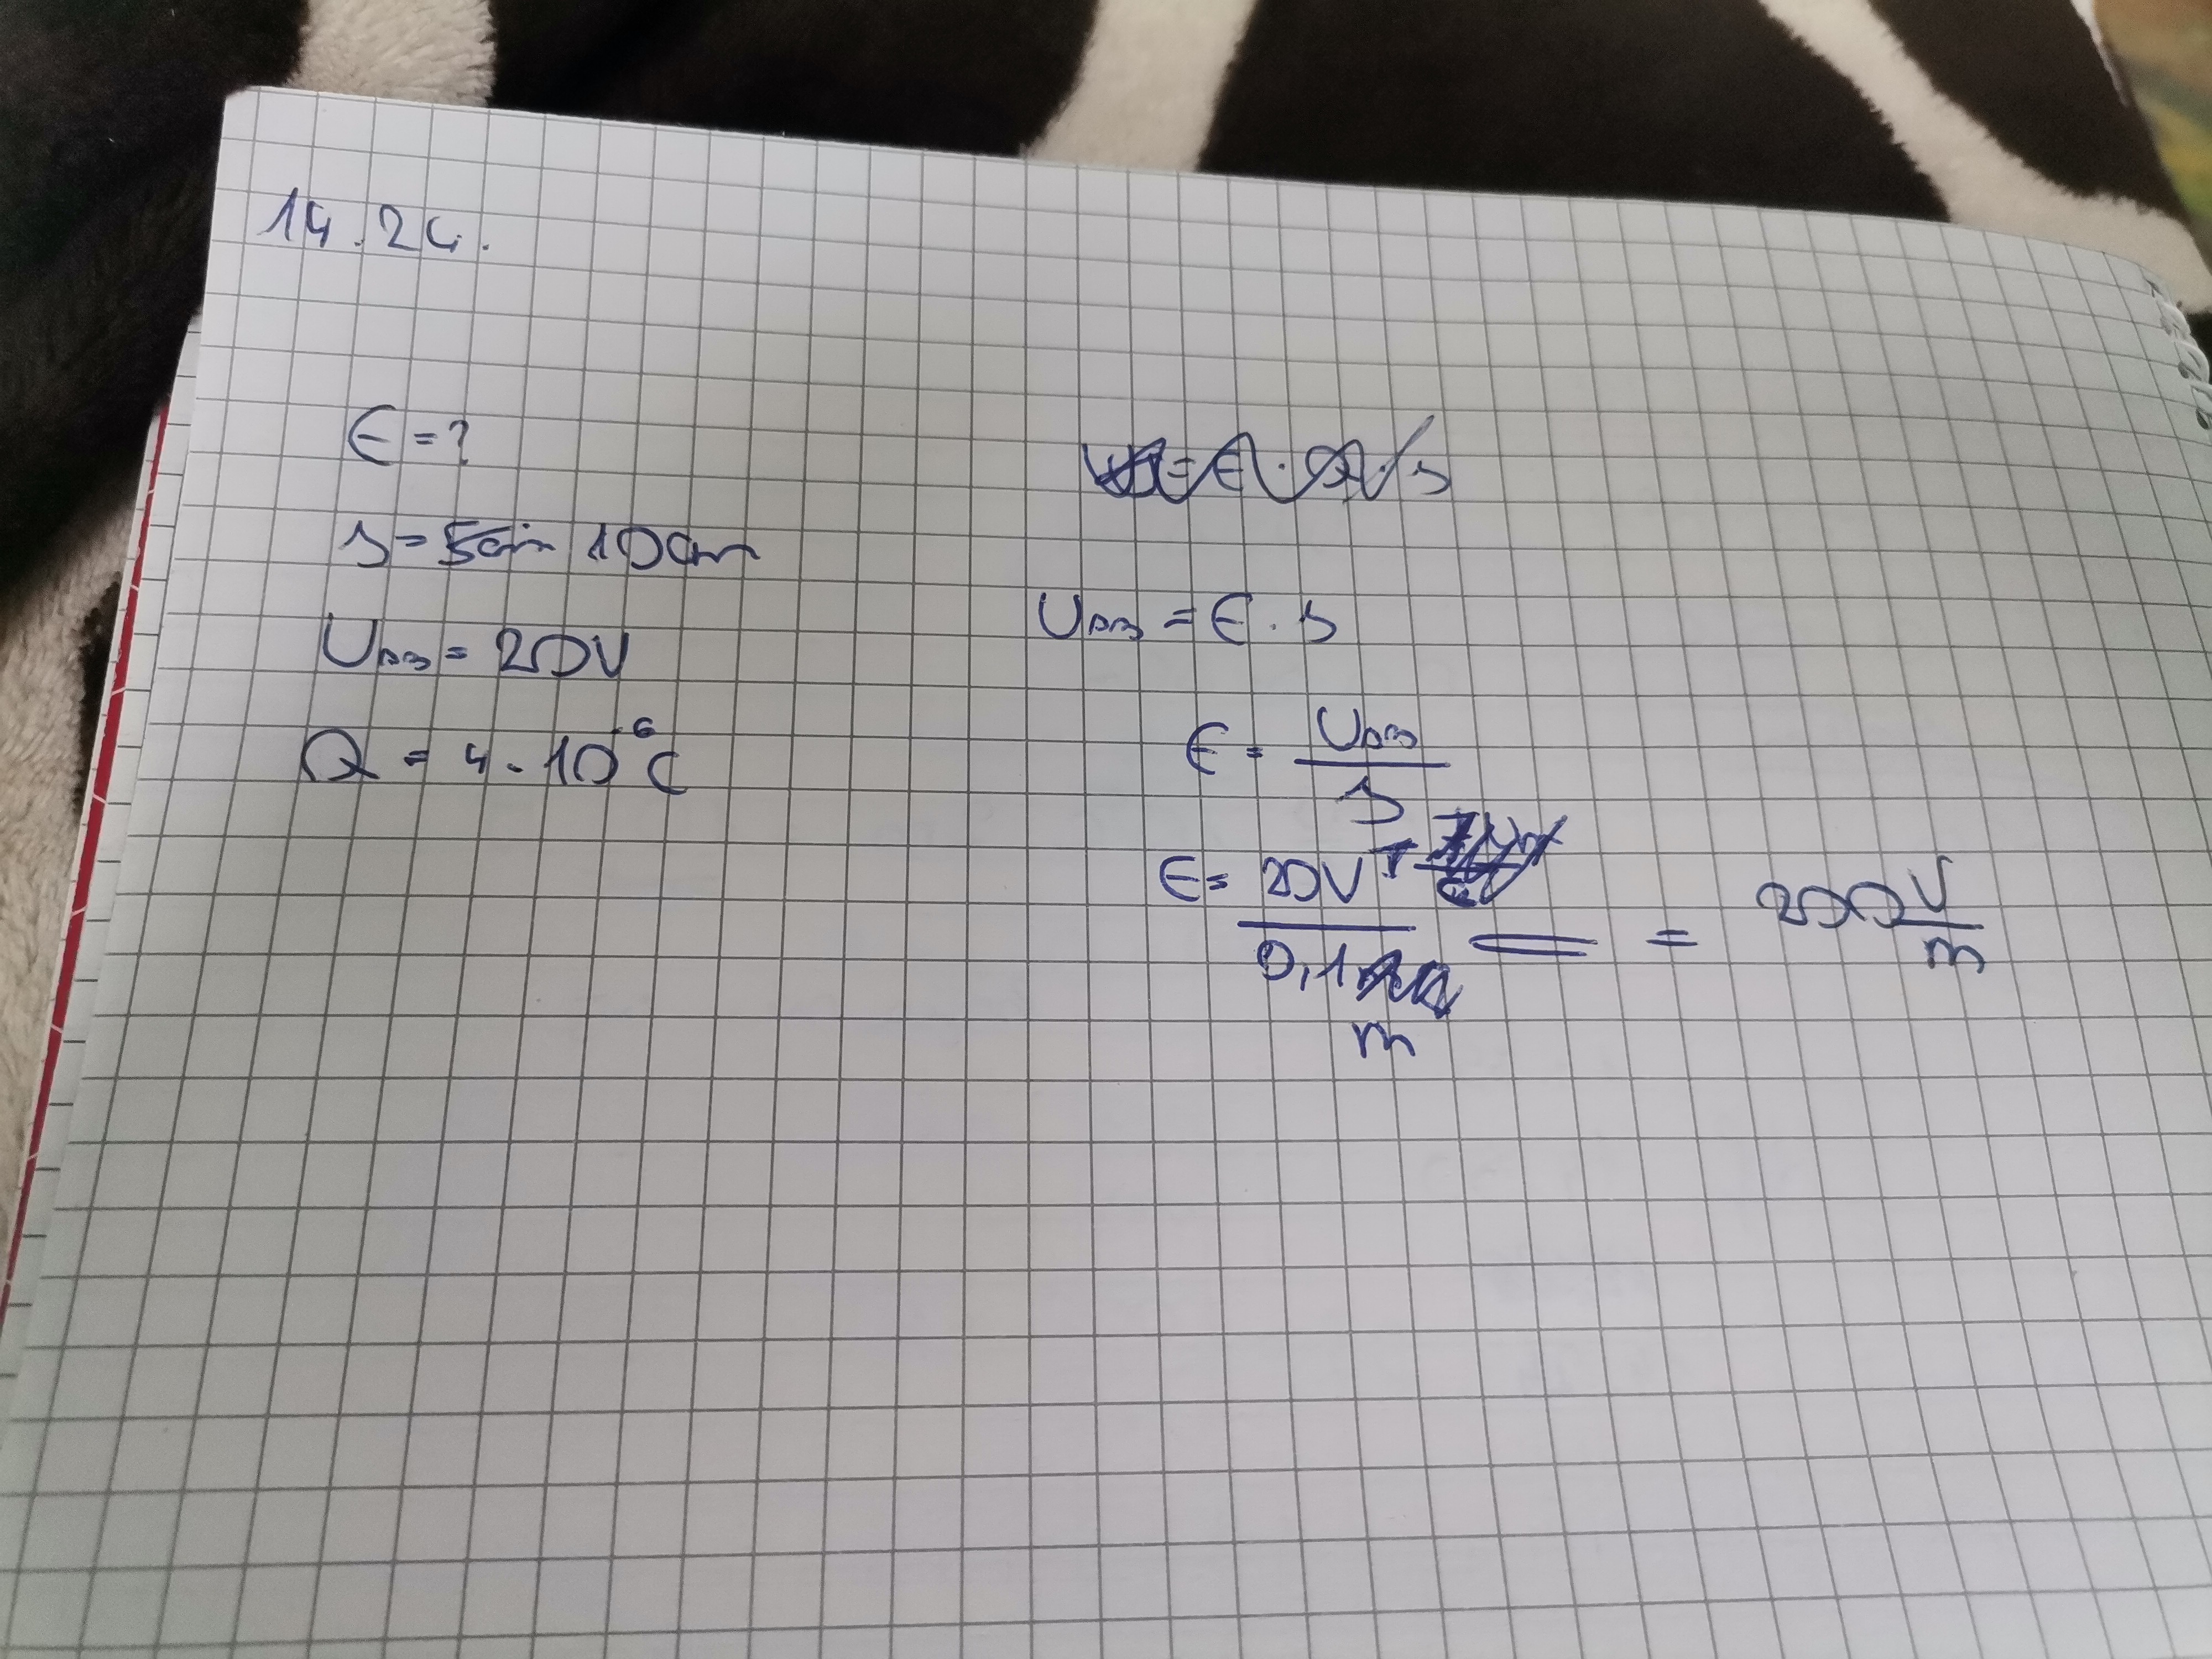 14.24.
E = ?
s = 5cm 10cm
U_AB = 20V
Q = 4 · 10⁻⁶ C
W = E · Q · s
U_AB = E · s
E = U_AB / s
E = 20V / 0,1 m = 200 V/m